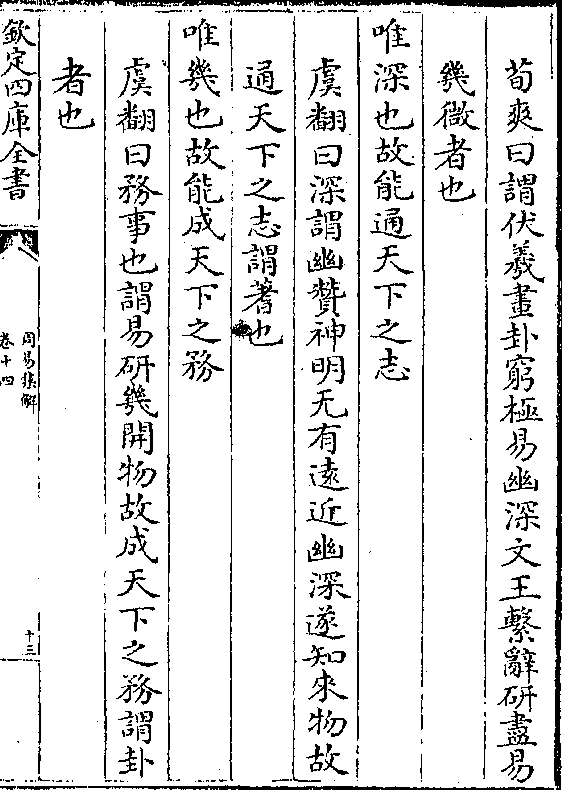 荀爽曰謂伏羲畫卦窮極易幽深文王繫辭研盡易
幾微者也
唯深也故能通天下之志
虞翻曰深謂幽贊神明无有遠近幽深遂知來物故
通天下之志謂蓍也
唯幾也故能成天下之務
虞翻曰務事也謂易研幾開物故成天下之務謂卦
者也
欽定四庫全書
周易集解
卷十四
十三